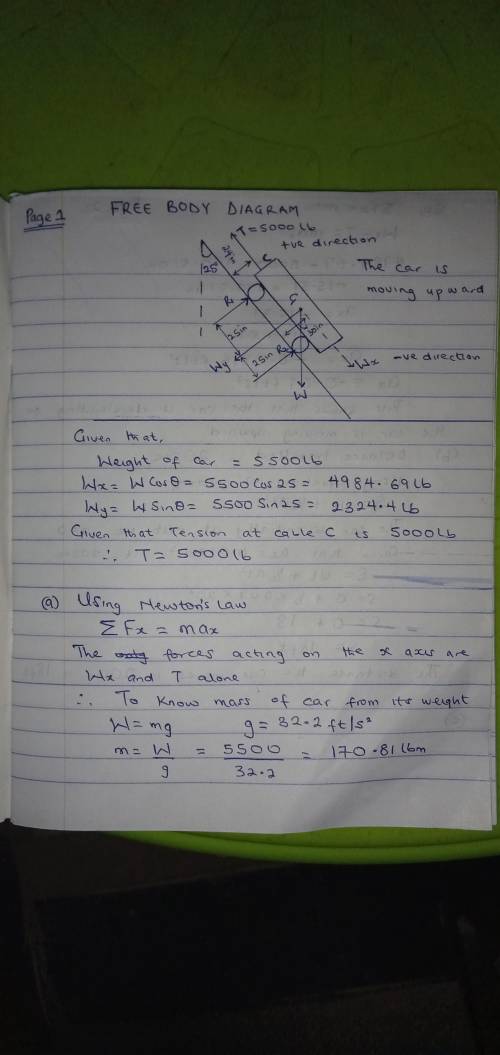 Page 1
FREE BODY DIAGRAM
T=5000lb
+ve direction
The car is
moving upward
24in
C
25
G
R1
25in
R2
25in
Wy
Wx
-ve direction
W
Given that,
Weight of car = 5500lb
Wx = W Cosθ = 5500 Cos 25 = 4984.69 lb
Wy = W Sinθ = 5500 Sin 25 = 2324.4 lb
Given that Tension at cable C is 5000lb
∴ T = 5000lb
(a) Using Newton's Law
ΣFx = max
The forces acting on the x axis are
Wx and T alone
∴ To know mass of car from its weight
W = mg g = 32.2 ft/s²
m = W/g = 5500/32.2 = 170.81 lbm